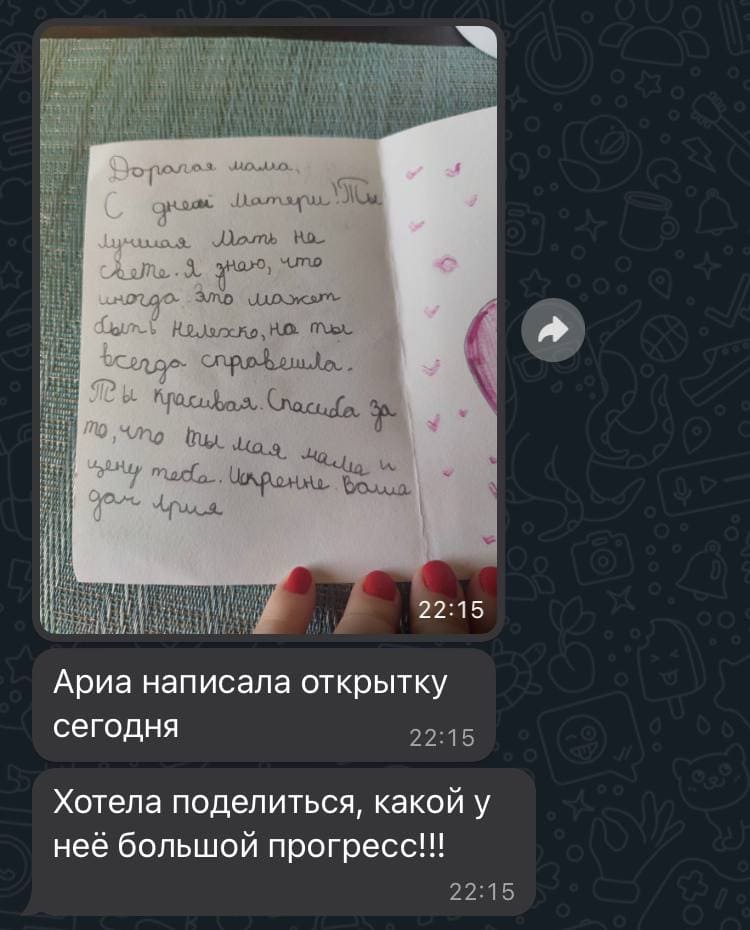 Дорагая мама,
С днем Матери! Ты
лучшая Мать на
свете. Я знаю, что
иногда это может
быть нелехко, но ты
всегда справешла.
Ты красивая. Спасиба за
то, что ты мая мама и
цену теба. Искренне Ваша
доч Ария
22:15
Ариа написала открытку
сегодня
22:15
Хотела поделиться, какой у
неё большой прогресс!!!
22:15